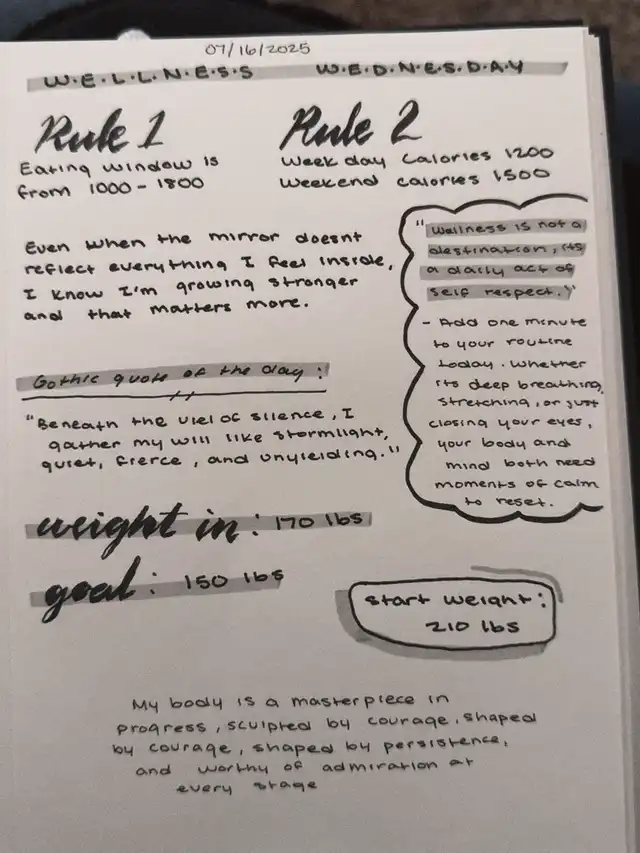 07/16/2025
W.E.L.L.N.E.S.S W.E.D.N.E.S.D.A.Y
Rule 1
Eating window is
from 1000 - 1800
Rule 2
Week day Calories 1200
Weekend calories 1,500
Even when the mirror doesnt
reflect everything I feel inside,
I know I'm growing stronger
and that matters more.
"Wellness is not a
destination, its
a daily act of
self respect."
- Add one minute
to your routine
today. Whether
its deep breathing,
stretching, or just
closing your eyes,
your body and
mind both need
moments of calm
to reset.
Gothic quote of the day:
"Beneath the viel of silence, I
gather my will like stormlight,
quiet, fierce, and unyielding."
weight in: 170 lbs
goal: 150 lbs
start weight:
210 lbs
My body is a masterpiece in
progress, sculpted by courage, shaped
by courage, shaped by persistence,
and worthy of admiration at
every stage